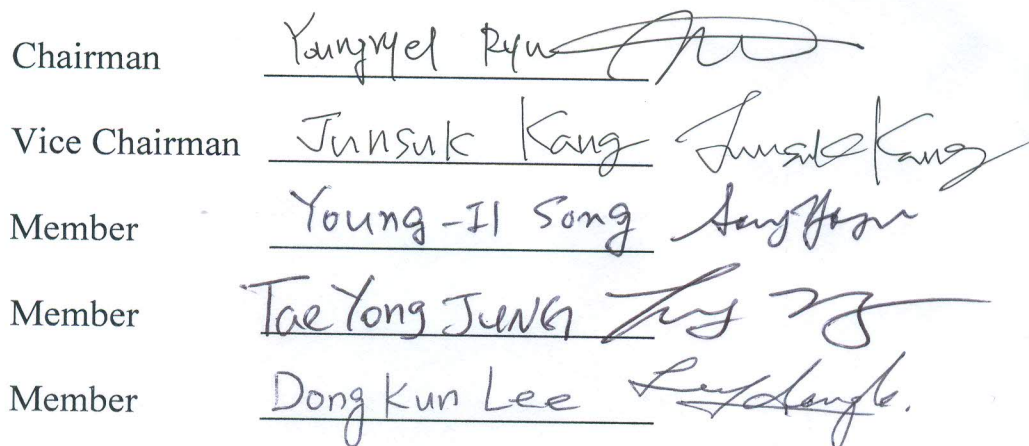 Chairman Youngryel Ryu
Vice Chairman Junsuk Kang Junsuk Kang
Member Young-Il Song
Member Tae Yong JUNG
Member Dong Kun Lee